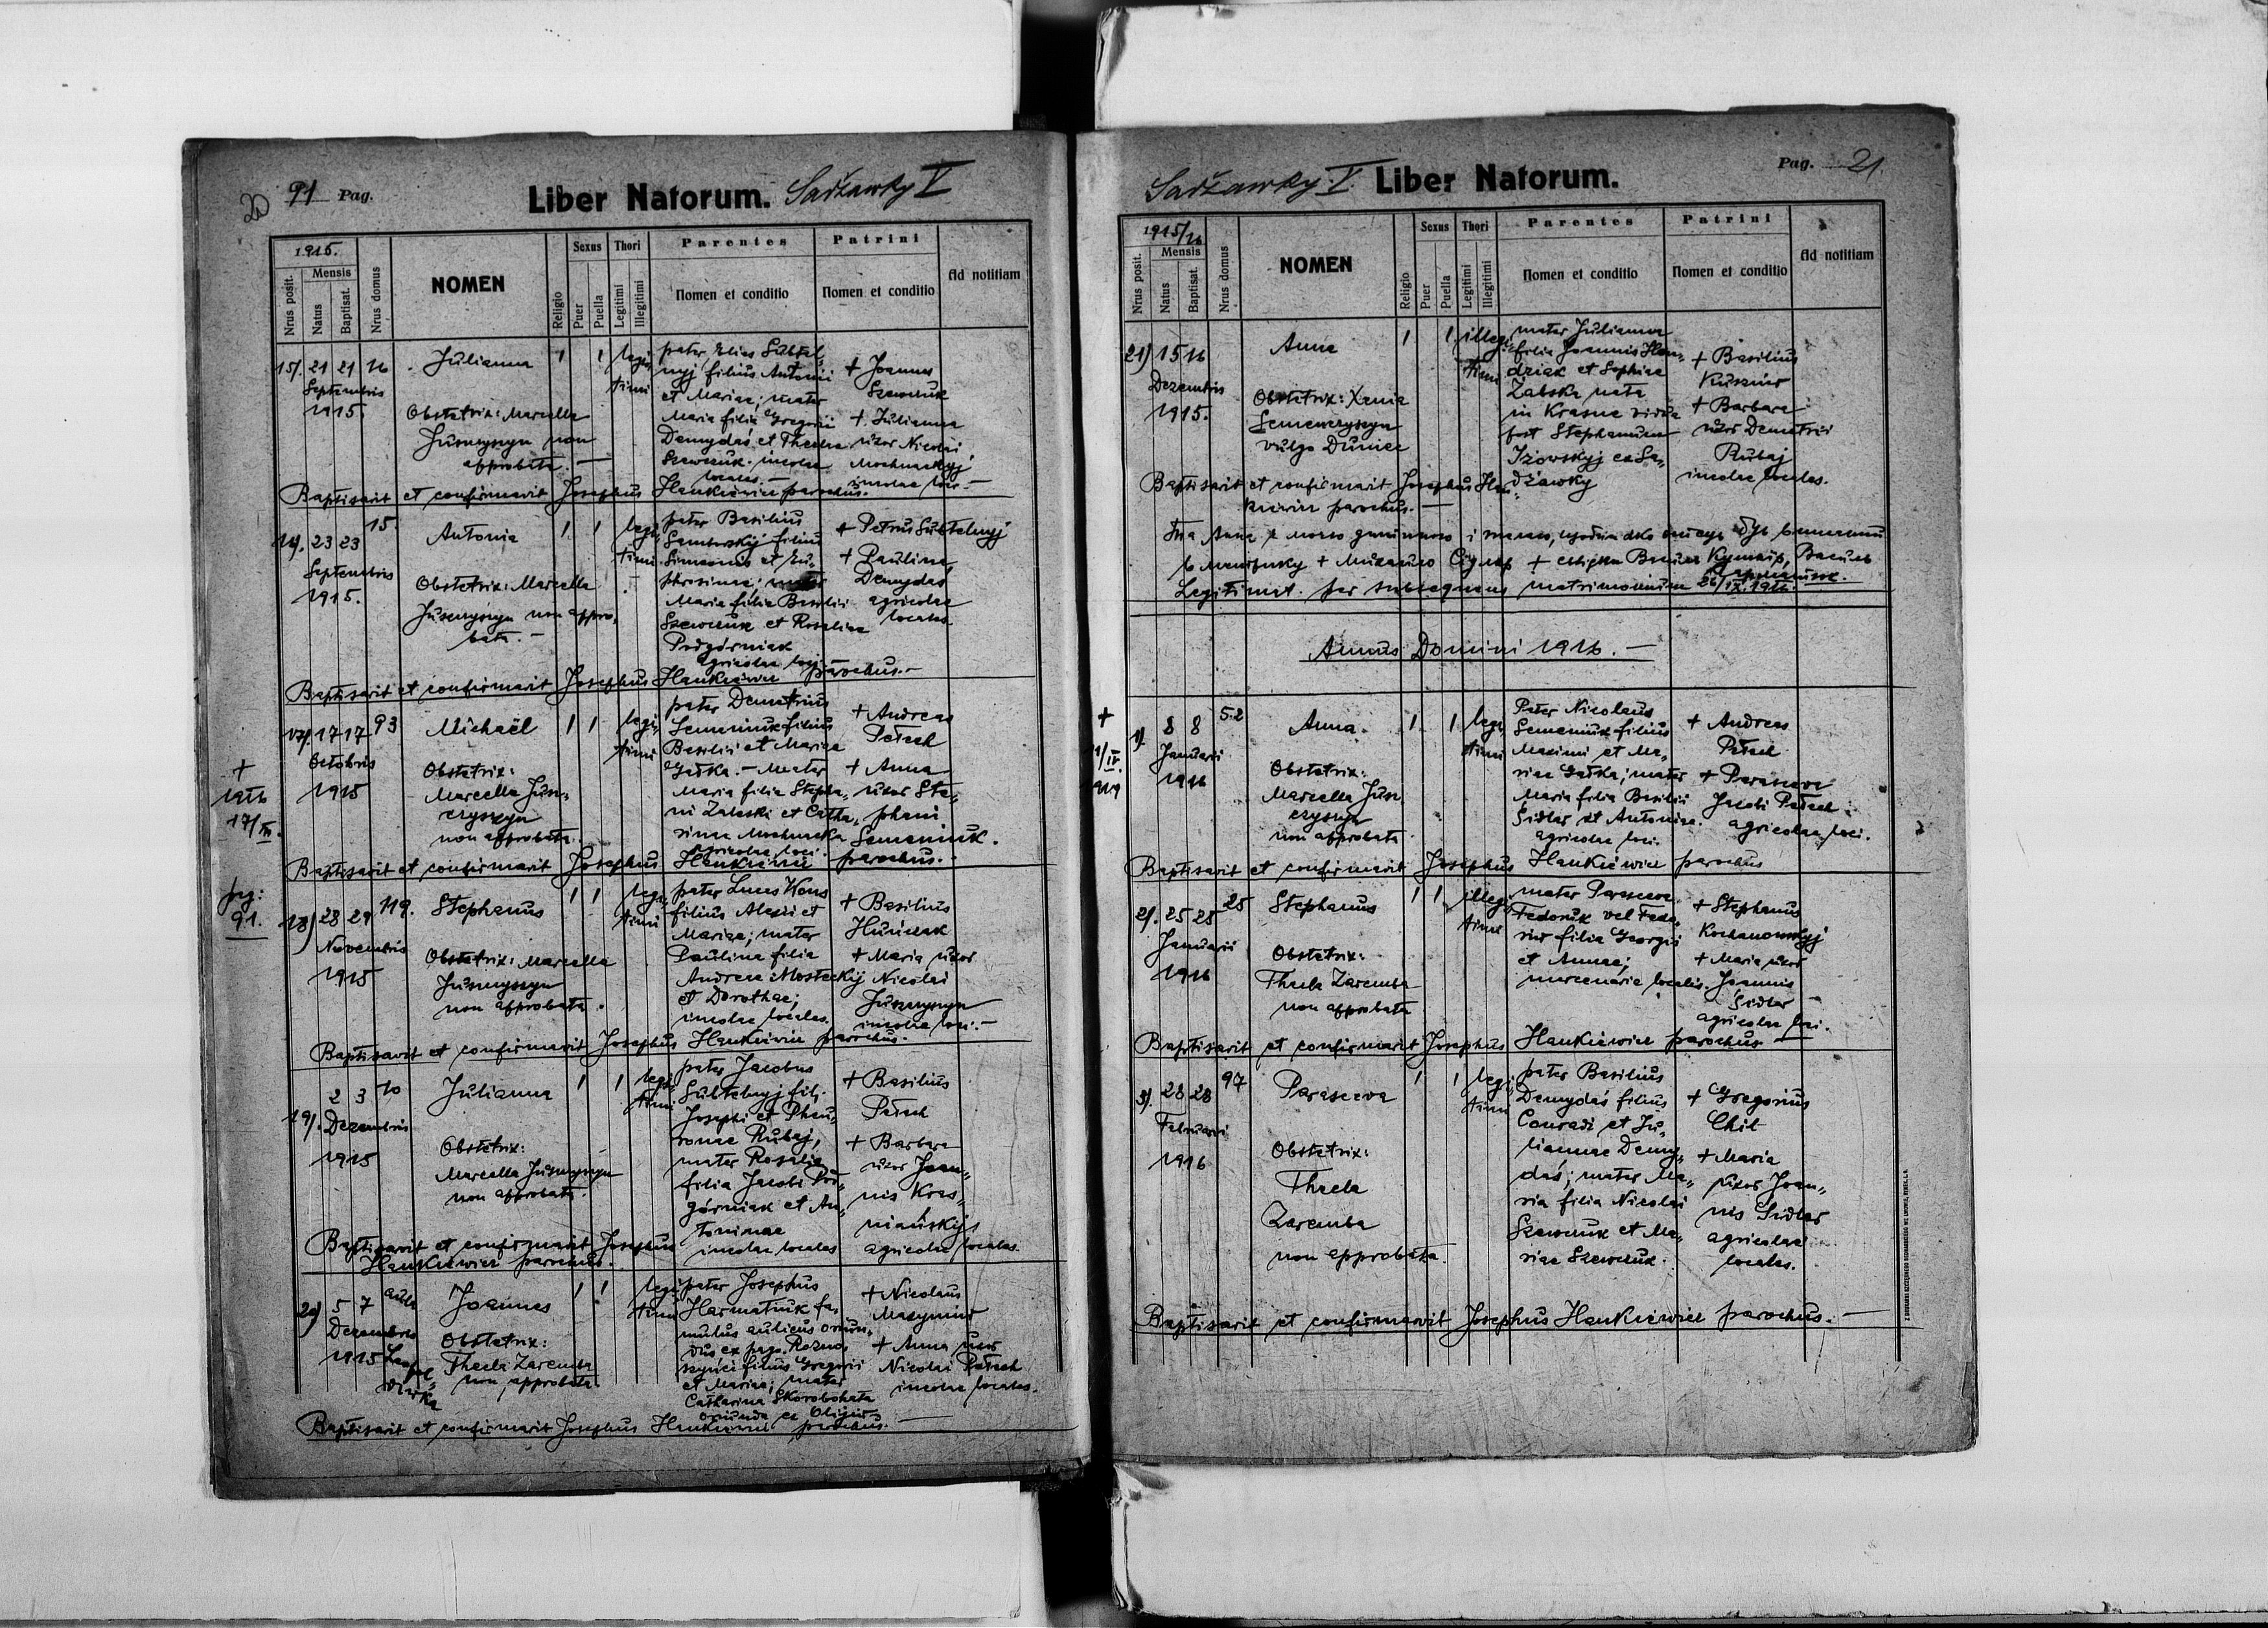 20 91 Pag. Liber Natorum. Sadžawky V
1915.
Nrus posit.
Mensis
Natus
Baptisat.
Nrus domus
NOMEN
Religio
Sexus
Puer
Puella
Thori
Legitimi
Illegitimi
Parentes
Nomen et conditio
Patrini
Nomen et conditio
Ad notitiam
15/. 21 21 16
Septembris
1915.
Julianna
Obstetrix: Marcella
non
approbata.
1 1 legi-
timi
pater Elias Subtel-
nyj filius Antonii
et Mariae; mater
Maria filia Gregorii
Demydaś et Theclae
Szewczuk. incolae
locales.
+ Joannes
Szewczuk
+ Julianna
uxor Nicolai
Mochnackyj
incolae loci
Baptisavit et confirmavit Josephus Hankiewicz parochus.
16/. 23 23 15
Septembris
1915.
Antonia
Obstetrix: Marcella
non appro-
bata.
1 1 legi-
timi
pater Basilius
filius
Simeonis et Eu-
mater
Maria filia Basilii
Szewczuk et Rosaliae
Podgórniak
agricolae loci
+ Petrus Subtelnyj
+ Paulina
Demydaś
agricolae
locales.
Baptisavit et confirmavit Josephus Hankiewicz parochus.
+
1916
17/III.
17/. 17 17 93
Octobris
1915
Michaël
Obstetrix:
Marcella Jusz-
czyszyn
non approbata.
1 1 legi-
timi
pater Demetrius
Semeniuk filius
Basilii et Mariae
Gałka. Mater
Maria filia Stepha-
ni Zaleski et Catha-
rinae Mochnacka
agricolae loci.
+ Andreas
Petrech
+ Anna
uxor Ste-
phani
Semeniuk.
Baptisavit et confirmavit Josephus Hankiewicz parochus.
pag:
91.
18) 28 29 119.
Novembris
1915
Stephanus
Obstetrix: Marcella
non approbata.
1 1 legi-
timi
pater Lucas Kons
filius Alexii et
Mariae; mater
Paulina filia
Andreae Mosteckij
et Dorothae;
incolae locales.
+ Basilius
+ Maria uxor
Nicolai
incolae loci.
Baptisavit et confirmavit Josephus Hankiewicz parochus.
19/. 2 3 10
Dezembris
1915
Julianna
Obstetrix:
Marcella
non approbata.
1 1 legi-
timi
pater Jacobus
Subtelnyj fil.
Josephi et Pheu-
ronae Rubaj,
mater Rosalia
filia Jacobi Pod-
górniak et An-
toninae
incolae locales
+ Basilius
Petrech
+ Barbara
uxor Joan-
nis Kras-
niańskyj
agricolae locales.
Baptisavit et confirmavit Josephus
Hankiewicz parochus.
20) 5 7
Dezembris
1915
Joannes
Obstetrix:
Thecla Zaremba
non approbata.
1 1 legi-
timi
pater Josephus
Harmatiuk fa-
mulus aulicus oriun-
dus ex pago
filius Gregorii
et Mariae; mater
Catharina Skorobohata
oriunda ex
+ Nicolaus
+ Anna uxor
Nicolai Petrech
incolae locales.
Baptisavit et confirmavit Josephus Hankiewicz parochus.
Sadžawky. V. Liber Natorum. Pag. 21.
1915/16
Nrus posit.
Mensis
Natus
Baptisat.
Nrus domus
NOMEN
Religio
Sexus
Puer
Puella
Thori
Legitimi
Illegitimi
Parentes
Nomen et conditio
Patrini
Nomen et conditio
Ad notitiam
21) 15 16
Dezembris
1915.
Anna
Obstetrix: Xenia
Semenczyszyn
vulgo
1 1 illegi-
timi
mater Julianna
filia Joannis
et Sophiae
Zabska nata
in Krasne vidua
post Stephanum
ex Sa-
džawky
+ Basilius
Kusznir
+ Barbara
uxor Demetrii
Rubaj
incolae locales.
Baptisavit et confirmavit Josephus Han-
kiewicz parochus.
Legitimat. per subsequens matrimonium 26/IX.1916.
Annus Domini 1916.
+
1/IV.
919
1/. 8 8 52
Januarii
1916
Anna.
Obstetrix:
Marcella Jusz-
czyszyn
non approbata.
1 1 legi-
timi
Pater Nicolaus
Semeniuk filius
Maximi et Ma-
riae Gałka; mater
Maria filia Basilii
Sidlar et Antoniae.
agricolae loci.
+ Andreas
Petrech
+ Parasceva
Jacobi Petrech
agricolae loci.
Baptisavit et confirmavit Josephus Hankiewicz parochus
2/. 25 25 25
Januarii
1916
Stephanus
Obstetrix:
Thecla Zaremba
non approbata
1 1 illegi-
timi
mater Parasceva
Fedoruk vel Fedo-
riw filia Georgii
et Annae;
mercenaria localis.
+ Stephanus
Kochanowskyj
+ Maria uxor
Joannis
Sidlar
agricolae loci.
Baptisavit et confirmavit Josephus Hankiewicz parochus
3/. 28 28 97
Februarii
1916
Parasceva
Obstetrix:
Thecla
Zaremba
non approbata.
1 1 legi-
timi
pater Basilius
Demydaś filius
Conradi et Ju-
liannae Demy-
daś; mater Ma-
ria filia Nicolai
Szewczuk et Ma-
riae Szewczuk.
+ Gregorius
Chil
+ Maria
uxor Joan-
nis Sidlar
agricolae
locales.
Baptisavit et confirmavit Josephus Hankiewicz parochus.